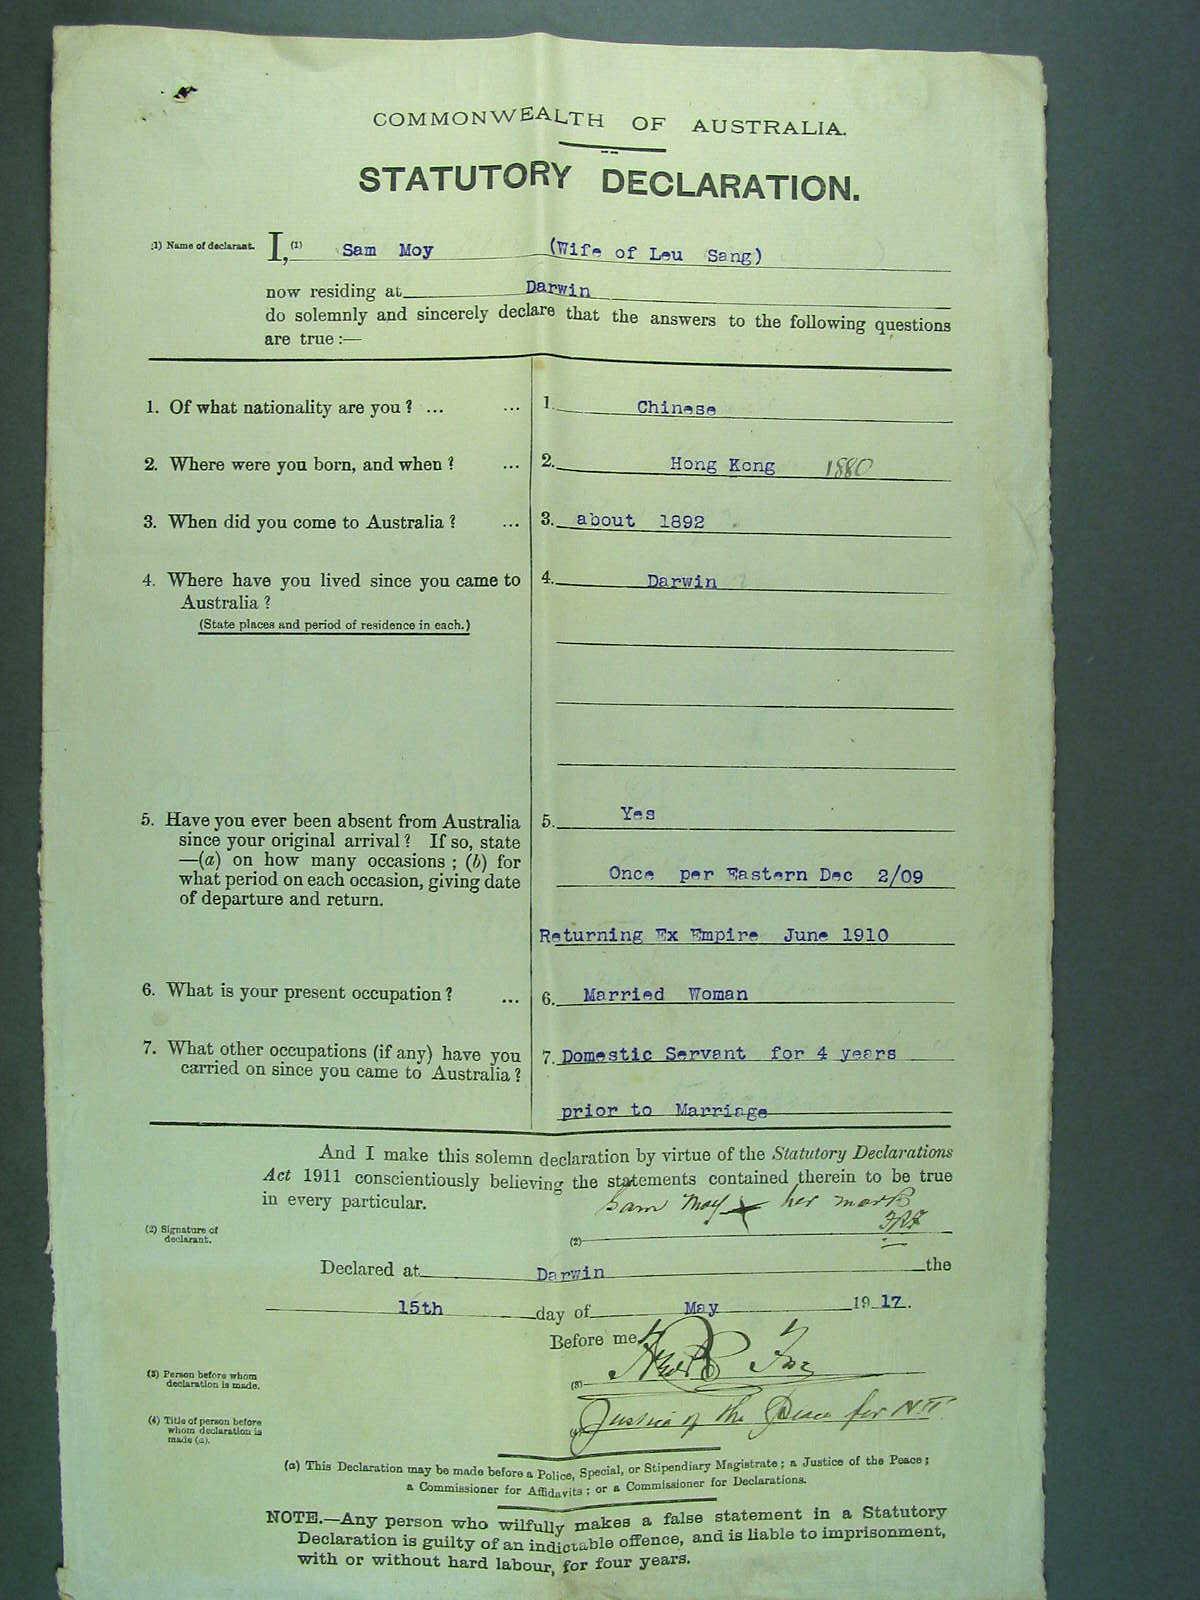 COMMONWEALTH OF AUSTRALIA.
STATUTORY DECLARATION.
(1) Name of declarant. I, (1) Sam Moy (Wife of Leu Sang)
now residing at Darwin
do solemnly and sincerely declare that the answers to the following questions
are true :—
1. Of what nationality are you ? ... ... 1. Chinese
2. Where were you born, and when ? ... 2. Hong Kong 1880
3. When did you come to Australia ? ... 3. about 1892
4. Where have you lived since you came to 4. Darwin
Australia ?
(State places and period of residence in each.)
5. Have you ever been absent from Australia 5. Yes
since your original arrival ? If so, state
—(a) on how many occasions ; (b) for
what period on each occasion, giving date Once per Eastern Dec 2/09
of departure and return.
Returning Ex Empire June 1910
6. What is your present occupation ? ... 6. Married Woman
7. What other occupations (if any) have you 7. Domestic Servant for 4 years
carried on since you came to Australia ?
prior to Marriage
And I make this solemn declaration by virtue of the Statutory Declarations
Act 1911 conscientiously believing the statements contained therein to be true
in every particular.
Sam Moy X her mark
(2) Signature of
declarant. (2)
Declared at Darwin the
15th day of May 1917.
Before me
(3) Person before whom
declaration is made. (3)
(4) Title of person before
whom declaration is
made (a). (4) Justice of the Peace for N.T.
(a) This Declaration may be made before a Police, Special, or Stipendiary Magistrate ; a Justice of the Peace ;
a Commissioner for Affidavits ; or a Commissioner for Declarations.
NOTE.—Any person who wilfully makes a false statement in a Statutory
Declaration is guilty of an indictable offence, and is liable to imprisonment,
with or without hard labour, for four years.